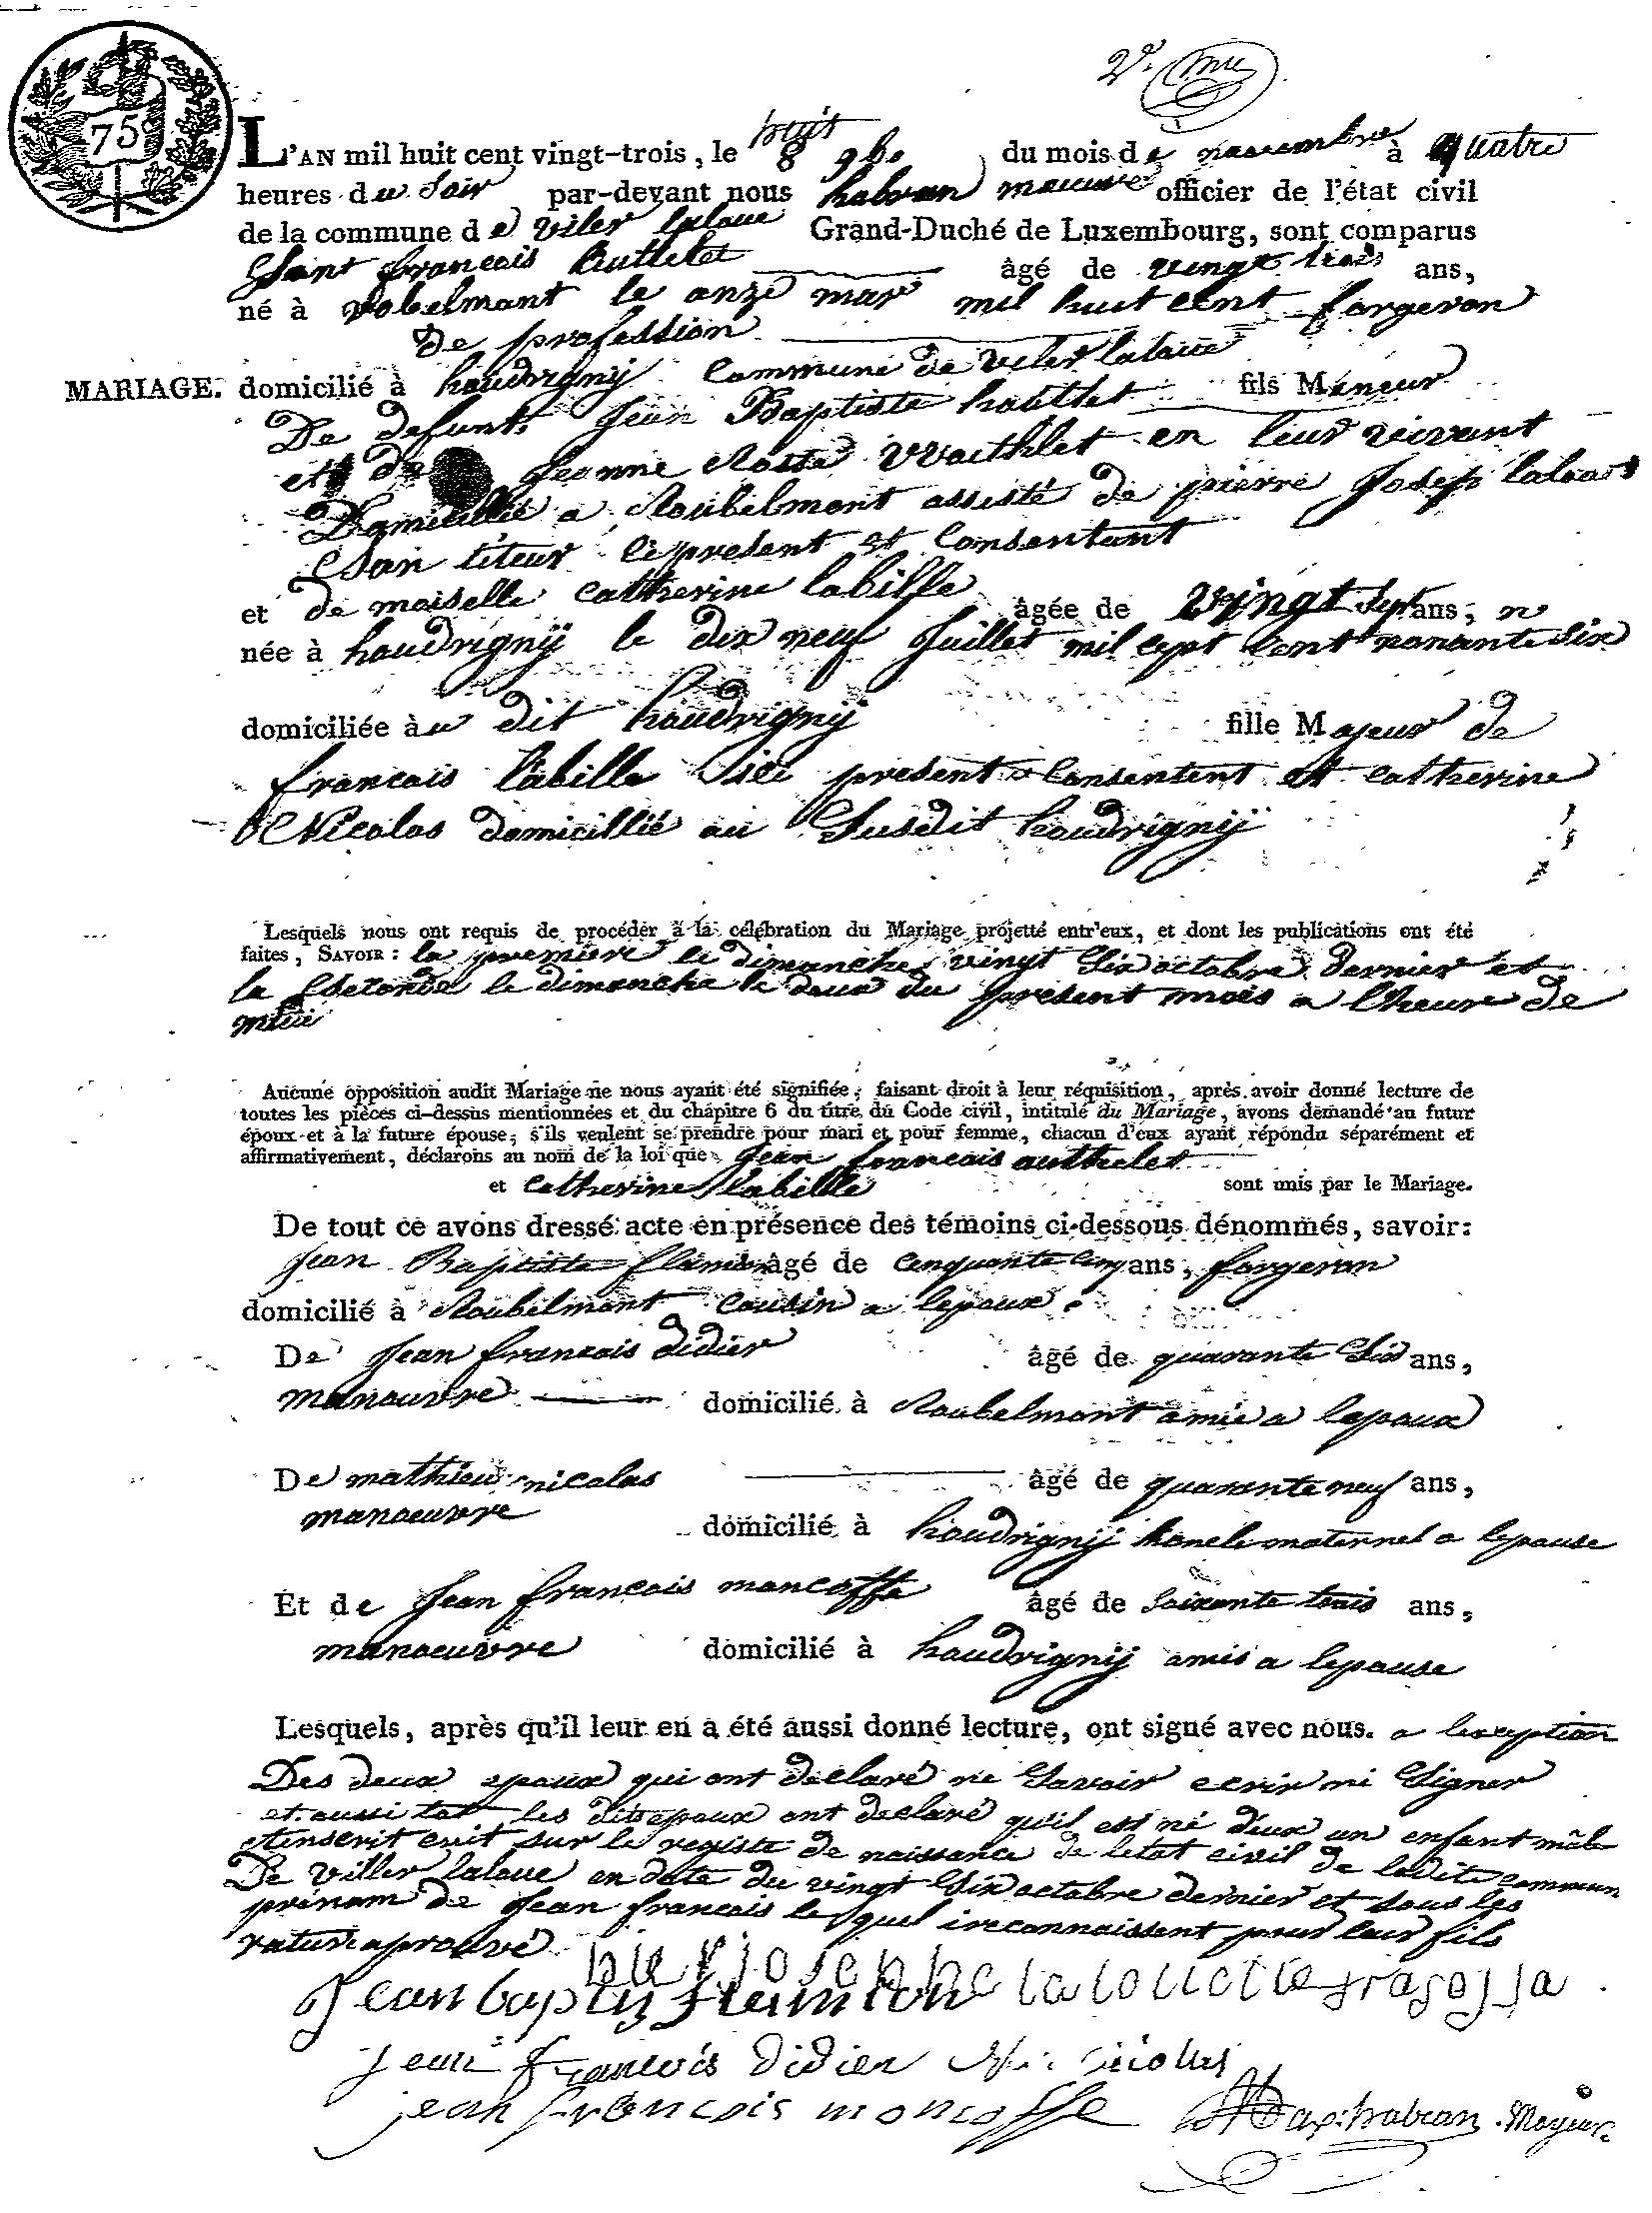 2e.
75c
huit
L'AN mil huit cent vingt-trois, le 8 9bo du mois de novembre à quatre
heures du soir par-devant nous habran officier de l'état civil
de la commune de viler laloue Grand-Duché de Luxembourg, sont comparus
francois huttelet âgé de vingt trois ans,
né à robelmont le onze mar mil huit cent forgeron
de profession
MARIAGE. domicilié à houdrignÿ commune de viler laloue fils Meneur
De defunt Jean Baptiste huttlet
et de Jeanne en leur vivant
Domicillié a Roubelmont assisté de pierre Joseph
Son tuteur present et Consentant
et de moiselle Catherine labille âgée de vingt Sept ans, n
née à houdrignÿ le dix neuf Juillet mil cept Cent nonante Six
domiciliée àu dit houdrignÿ fille Majeur de
francois labille ici present Consentent et catherine
Nicolas domicillié au Susdit houdrignÿ
Lesquels nous ont requis de procéder à la célébration du Mariage projetté entr'eux, et dont les publications ont été
faites, SAVOIR : la premiere le dimanche vingt Six octobre dernier et
la Seconde le dimanche le deux du present mois a lheure de
midi
Aucune opposition audit Mariage ne nous ayant été signifiée, faisant droit à leur réquisition, après avoir donné lecture de
toutes les pièces ci-dessus mentionnées et du chapitre 6 du titre du Code civil, intitulé du Mariage, avons demandé au futur
époux et à la future épouse, s'ils veulent se prendre pour mari et pour femme, chacun d'eux ayant répondu séparément et
affirmativement, déclarons au nom de la loi que Jean francois authelet
et Catherine labille sont unis par le Mariage.
De tout ce avons dressé acte en présence des témoins ci-dessous dénommés, savoir :
Jean Baptiste âgé de cenquante cinq ans, forgeron
domicilié à Roubelmont Cousin a lepoux
De Jean francois didier âgé de quarante Six ans,
manouvre domicilié à Roubelmont amie a lepoux
De mathieu nicolas âgé de quarante neuf ans,
manoeuvre domicilié à houdrignÿ maternel a lepouse
Et de Jean francois moncoffe âgé de soixante trois ans,
manoeuvre domicilié à houdrignÿ amis a lepouse
Lesquels, après qu'il leur en a été aussi donné lecture, ont signé avec nous. a lexception
Des deux epoux qui ont declaré ne Savoir ecrir ni Signer
et aussi tot les dits epoux ont declaré qu'il est né deux un enfant mâle
et inscrit sur le registe de naissance de letat civil de ladite commun
De viller laloue en date du vingt Six octobre dernier et sous les
prénom de Jean francois le quel ireconnaissent pour leur fils
rature aprouvé
pierjosephe lalouette
Jean baptis
jean francois didier nicolas
jean francois moncoffe habran Mayeur